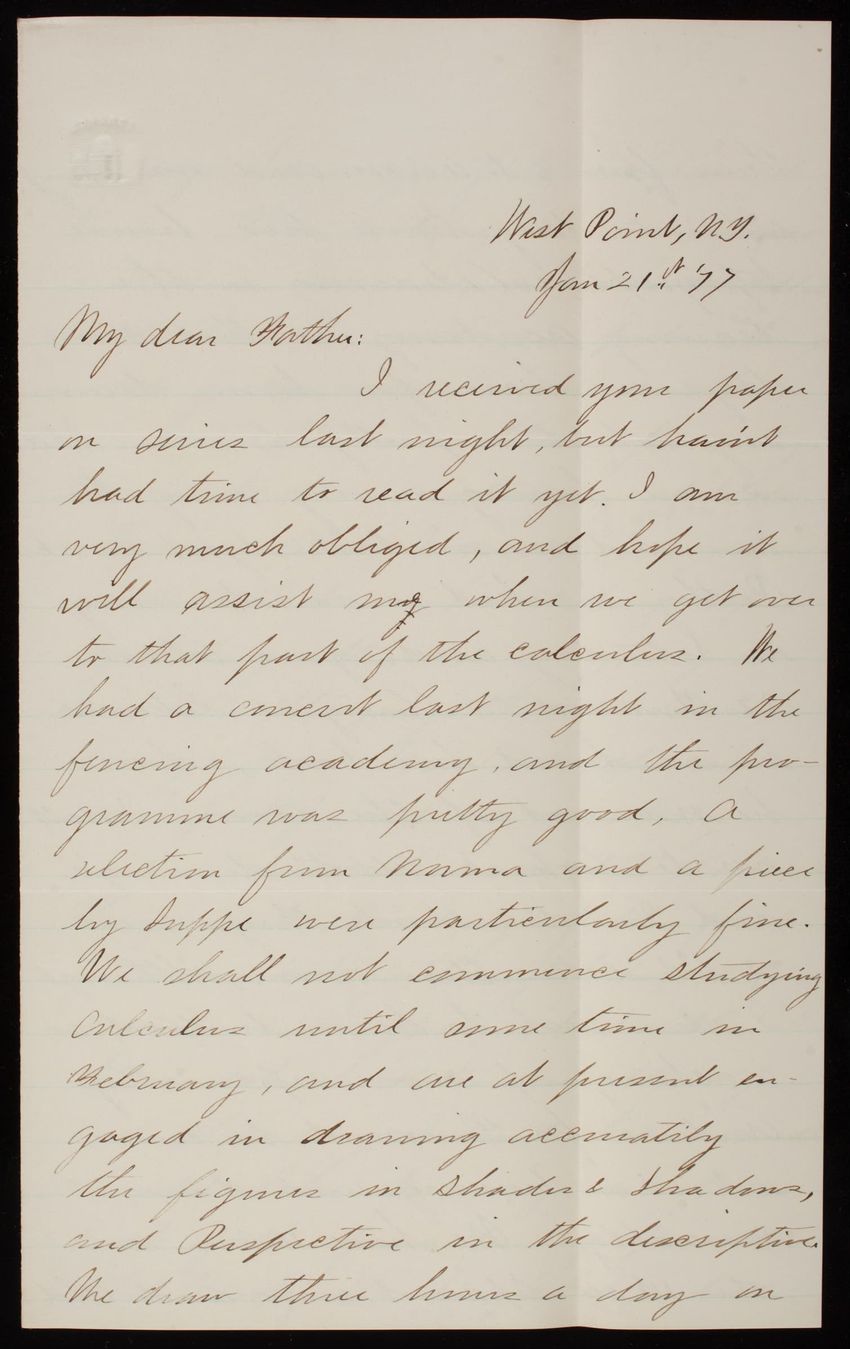 West Point, N.Y.
Jan 21st '77
My dear Father:
I received your paper
on series last night, but hav'nt
had time to read it yet. I am
very much obliged, and hope it
will assist me when we get over
to that part of the calculus. We
had a concert last night in the
fencing academy, and the pro-
gramme was pretty good. A
selection from Norma and a piece
by Suppe were particularly fine.
We shall not commence studying
Calculus until some time in
February, and are at present en-
gaged in drawing accurately
the figures in Shades & Shadows,
and Perspective in the descriptive.
We draw three hours a day on